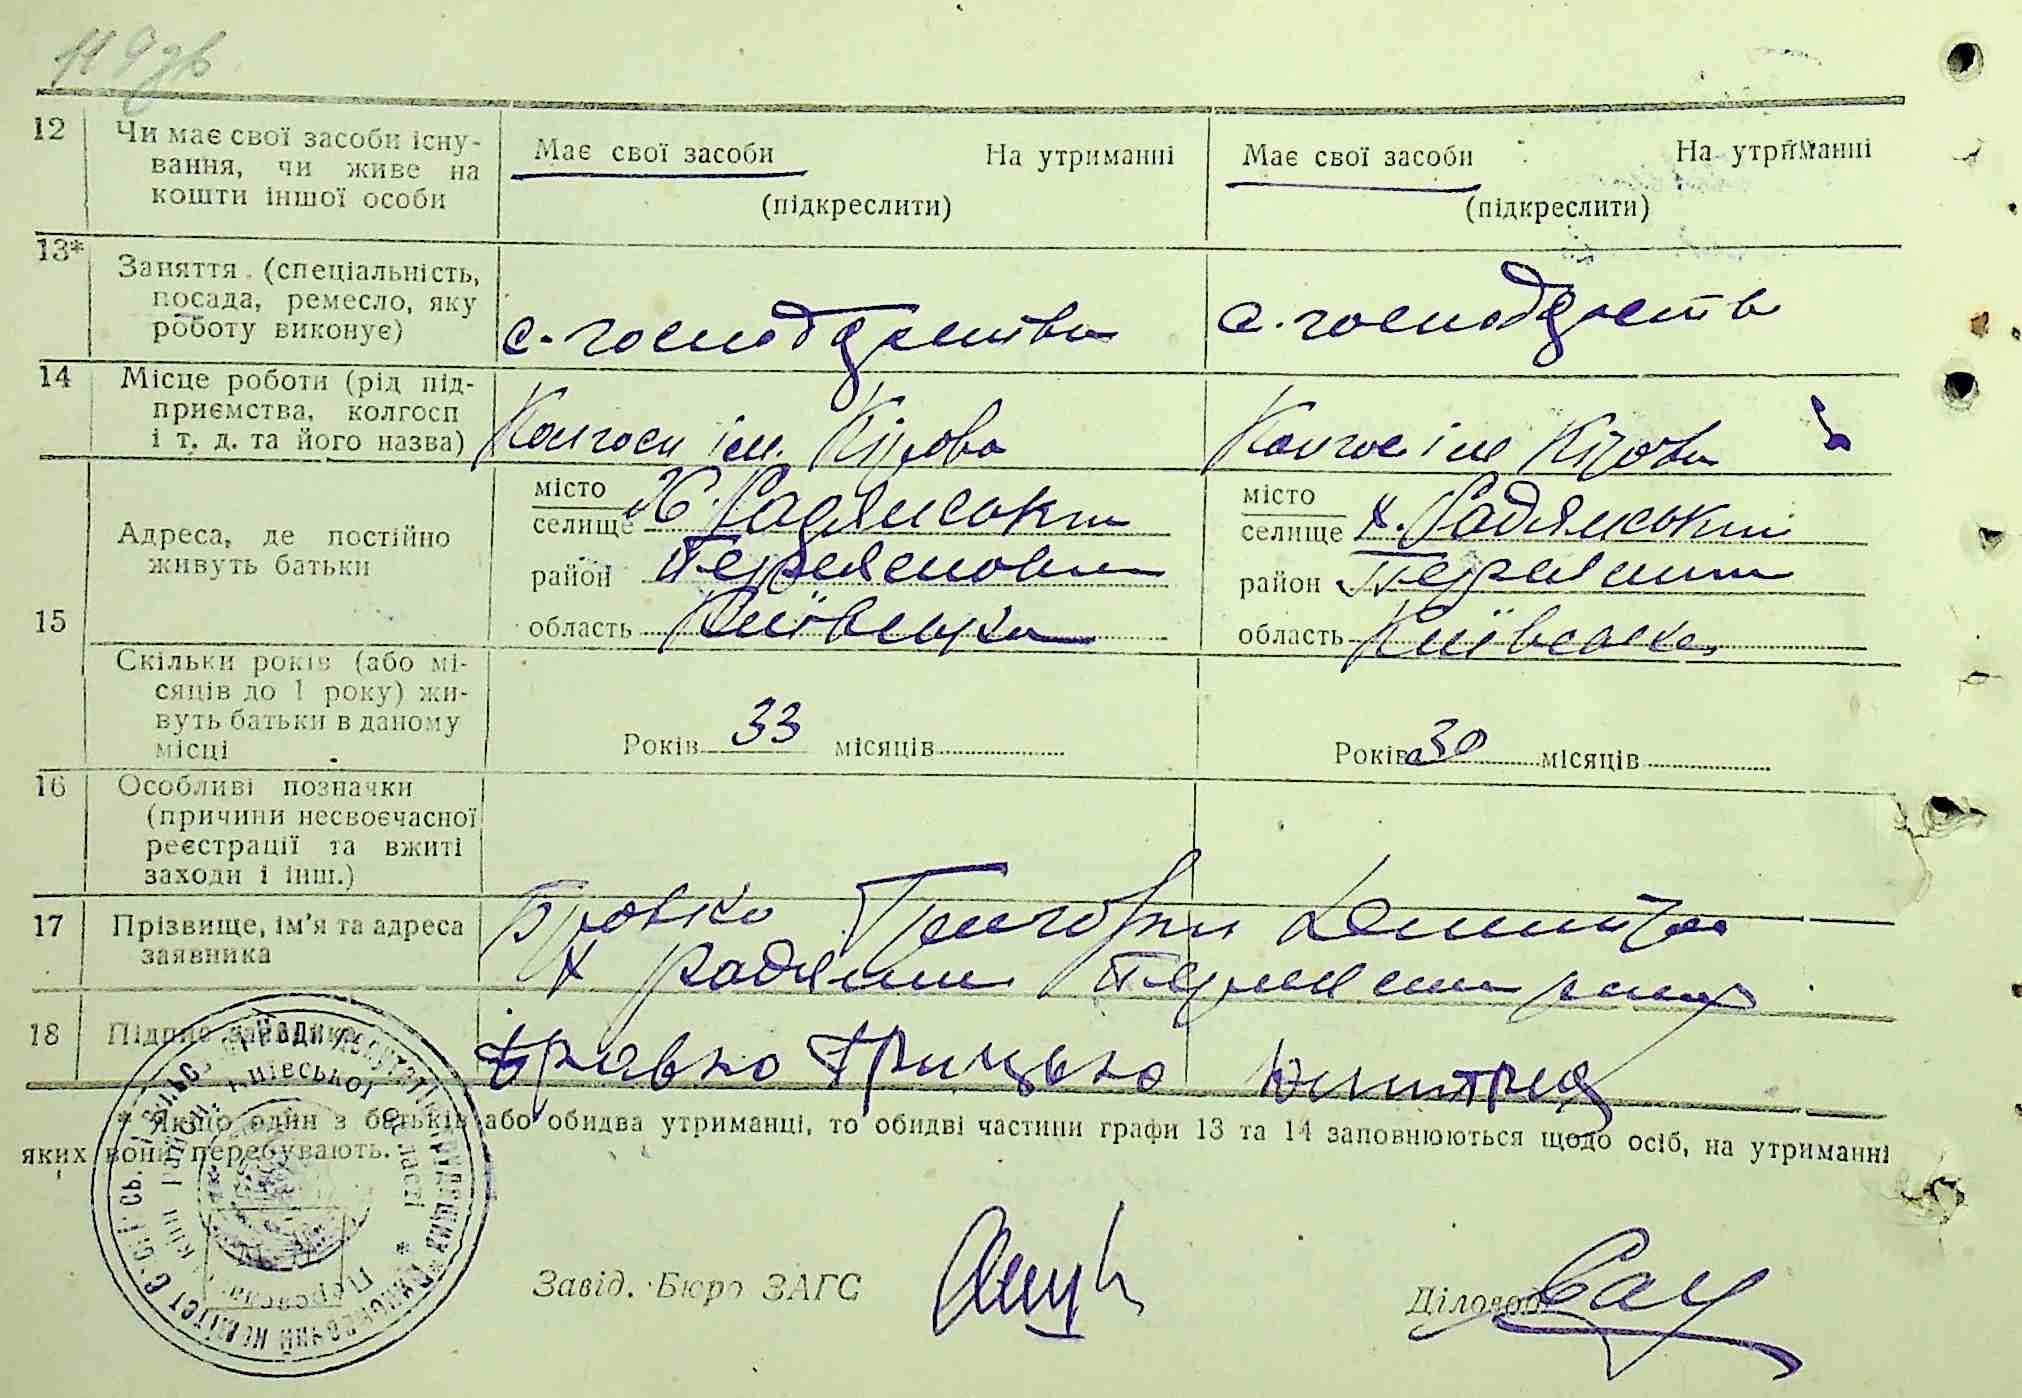 119зв
12 Чи має свої засоби існу- Має свої засоби На утриманні Має свої засоби На утриманні
вання, чи живе на
кошти іншої особи (підкреслити) (підкреслити)
13* Заняття (спеціальність,
посада, ремесло, яку с. господарства с. господарств
роботу виконує)
14 Місце роботи (рід під-
приємства, колгосп Колгосп ім. Кірова Колгос ім Кірова
і т. д. та його назва)
15 Адреса, де постійно місто селище Х. Радянський місто селище х. Радянський
живуть батьки район район
область Київська область Київська
Скільки років (або мі-
сяців до 1 року) жи-
вуть батьки в даному Років 33 місяців Років 30 місяців
місці
16 Особливі позначки
(причини несвоєчасної
реєстрації та вжиті
заходи і інш.)
17 Прізвище, ім'я та адреса Бровко Григорій
заявника х
18 Підпис заявника Бравко Грицько
* Якщо один з батьків або обидва утриманці, то обидві частини графи 13 та 14 заповнюються щодо осіб, на утриманні
яких вони перебувають.
Завід. Бюро ЗАГС Діловод